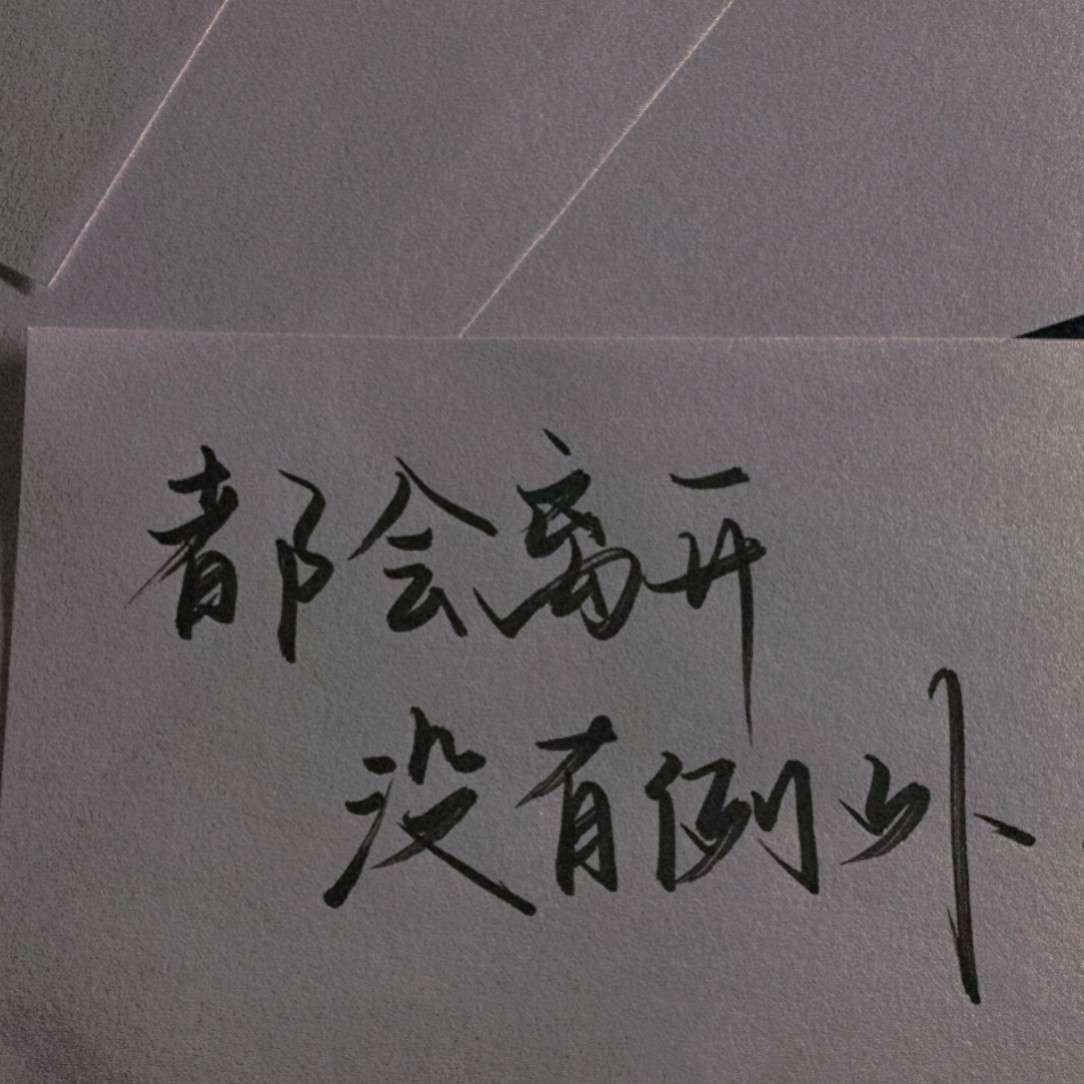 都会离开
没有例外